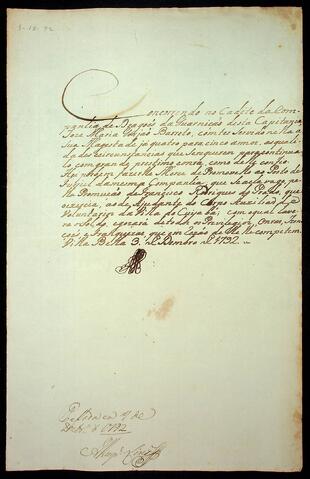 3-12-92
Concorrendo no Cadete da Com-
panhia de Dragões da Guarnição desta Capitania,
Joze Maria Velho Barreto, com ter servido nella a
Sua Magestade já quatro para cinco annos, as quali-
dades e circunstancias que se requerem para continua-
lo com grande prestimo
Hey por bem fazer lhe Mercê de Promovello ao Posto de
Furriel da mesma Companhia, que se acha vago, pe-
la Promoção de Francisco Rodrigues do Prado, que
exercia, ao de Ajudante do Corpo Auxiliar de
Voluntarios da Villa do Cuyabá; com o qual have-
rá Soldo, e gozará de todos os Privilegios, Onras, Izen-
çoes, e Franquezas, que em razão delle lhe competem.
Villa Bella 3 de Dezembro de 1792.
de
1792